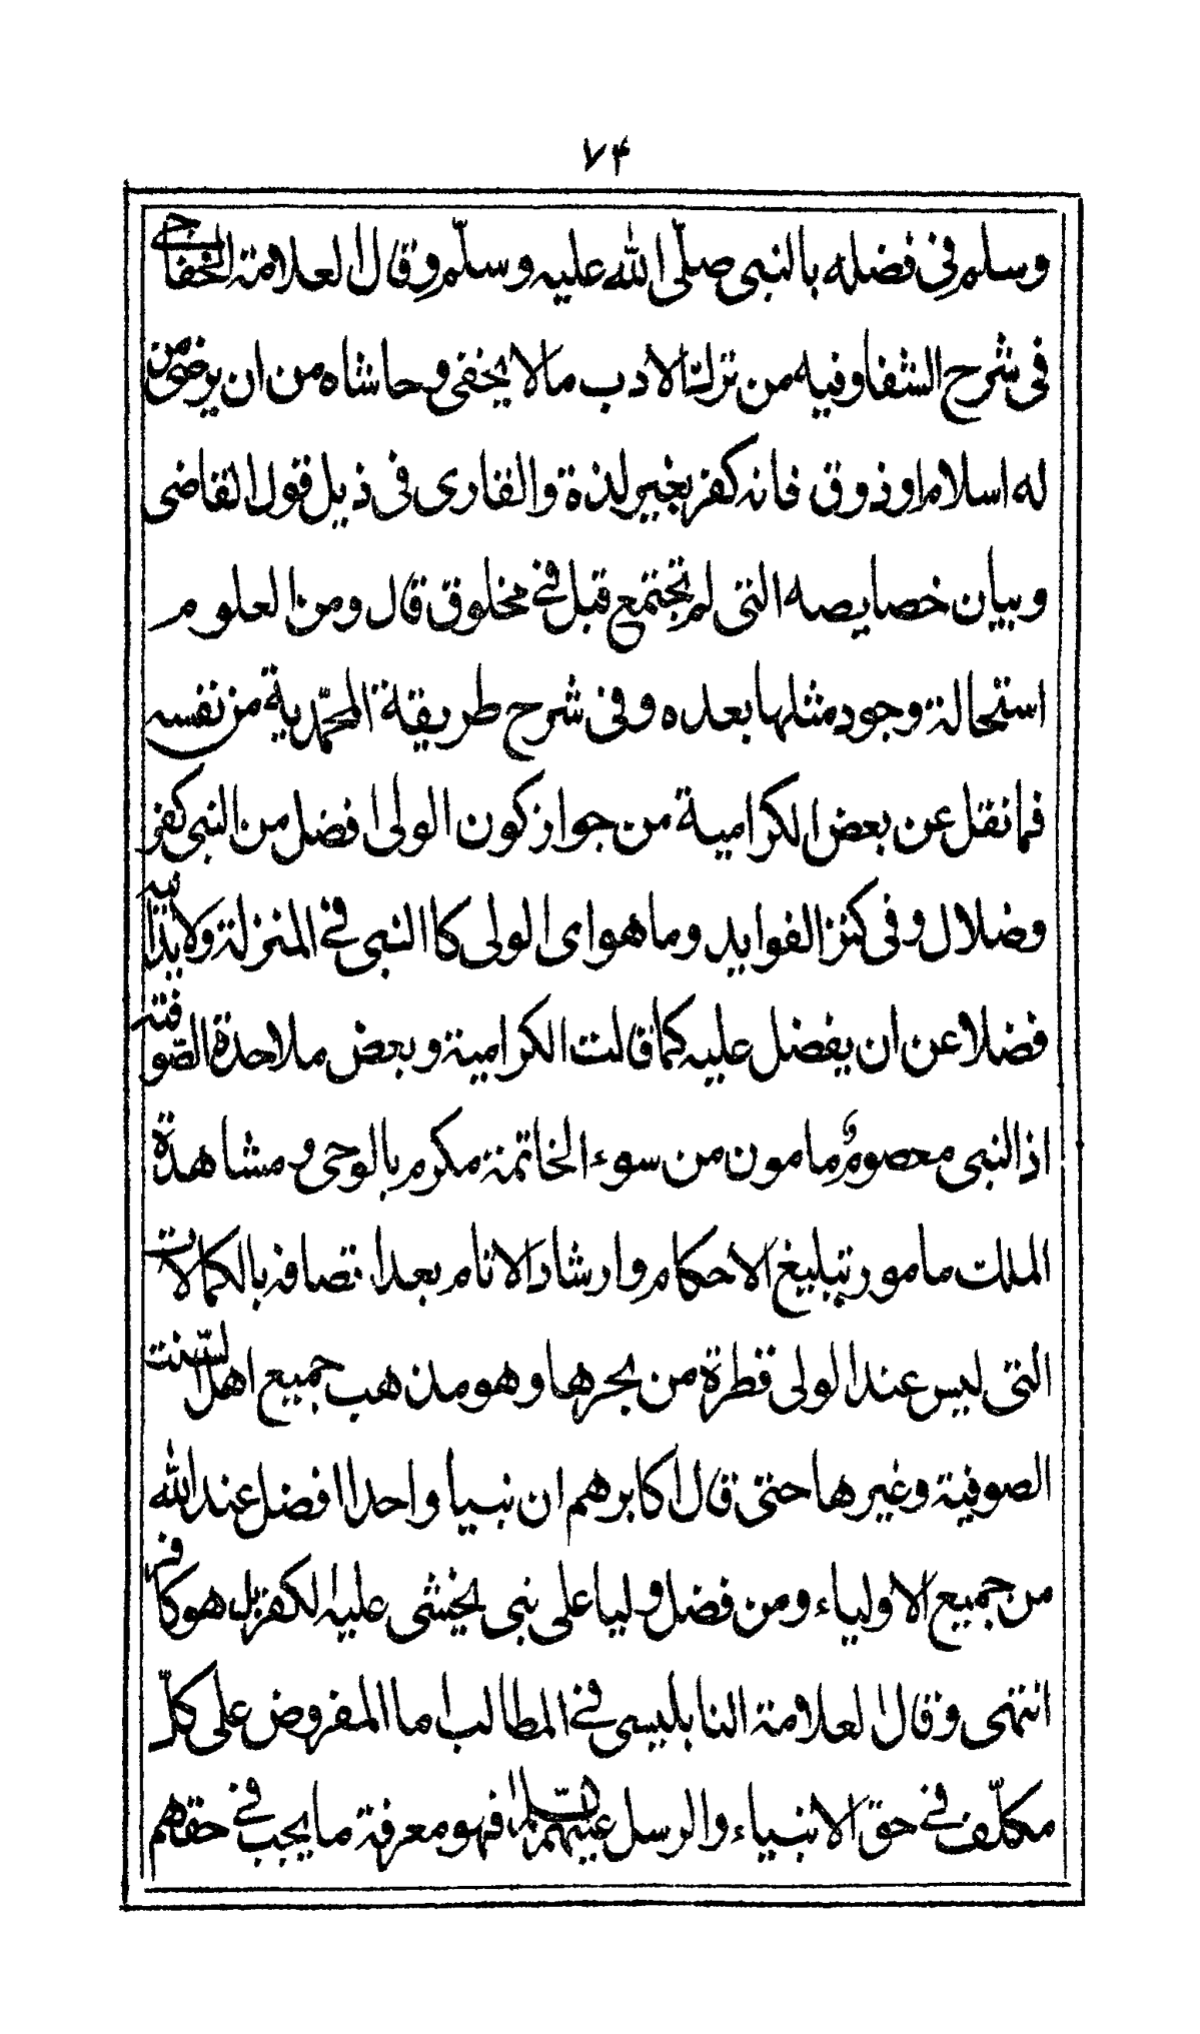 ۷۴
وسلم فی فضله بالنبی صلّی الله علیه وسلّم وقال العلامة الخفاجی
فی شرح الشفا وفیه من ترك الادب مالا یخفی وحاشاه من ان یرضی من
له اسلام او ذوق فانه کفر بغیر لذة والقاری فی ذیل قول القاضی
وبیان خصایصه التی لم تجتمع قبل فی مخلوق قال ومن العلوم
استحالة وجود مثلها بعده وفی شرح طریقة المحمّدیة من نفسه
فما نقل عن بعض الکرامیة من جواز کون الولی افضل من النبی کفر
وضلال وفی کنز الفواید وما هو ای الولی کا النبی فی المنزلة ولا یدانیه
فضلا عن ان یفضل علیه کما قالت الکرامیة وبعض ملاحدة الصّوفیة
اذ النبی معصوم و مامون من سوء الخاتمة مکرم بالوحی و مشاهدة
الملك مامور بتبلیغ الاحکام وارشاد الانام بعد اتصافه بالکمالات
التی لیس عند الولی قطرة من بحرها وهو مذهب جمیع اهل السّنت
الصوفیة وغیرها حتی قال اکابرهم ان نبیا واحدا افضل عند الله
من جمیع الاولیاء ومن فضل ولیا علی نبی یخشی علیه الکفر بل هو کافر
انتهی وقال العلامة النابلیسی فی المطالب اما المفروض علی کلّ
مکلّف فی حق الانبیاء والرسل علیهم السّلام فهو معرفة ما یجب فی حقهم